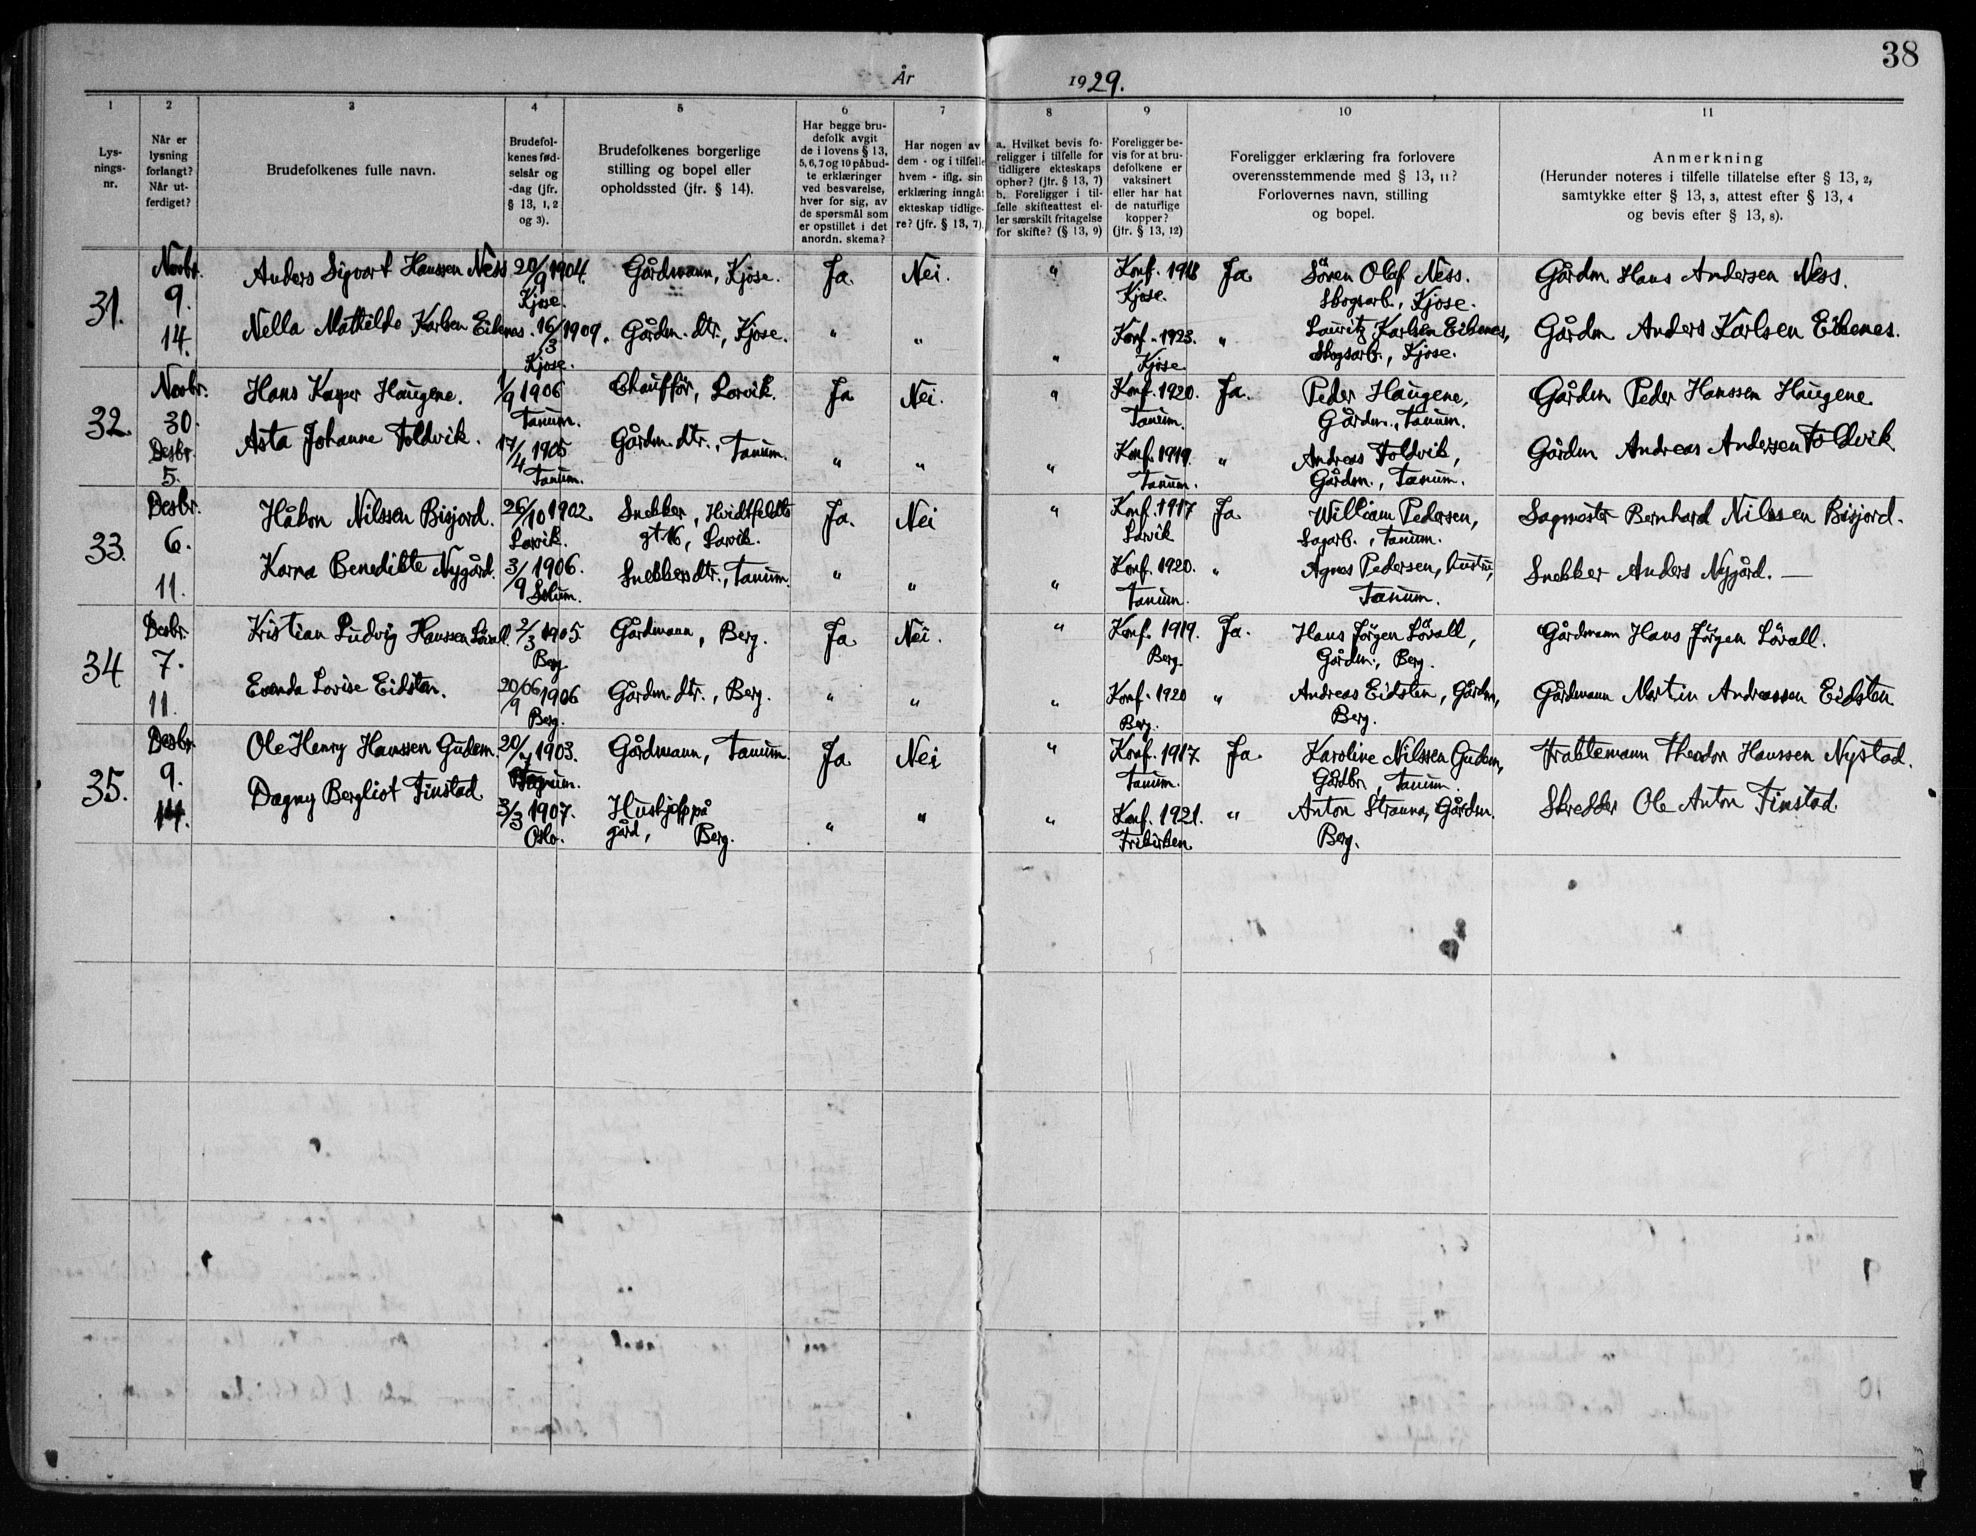 38
År 1929.
1 2 3 4 5 6 7 8 9 10 11
Lys-
nings-
nr.
Når er
lysning
forlangt?
Når ut-
ferdiget?
Brudefolkenes fulle navn.
Brudefol-
kenes fød-
selsår og
-dag (jfr.
§ 13, 1, 2
og 3).
Brudefolkenes borgerlige
stilling og bopel eller
opholdssted (jfr. § 14).
Har begge bru-
defolk avgit
de i lovens § 13,
5, 6, 7 og 10 påbud-
te erklæringer
ved besvarelse,
hver for sig, av
de spørsmål som
er opstillet i det
anordn. skema?
Har nogen av
dem - og i tilfelle
hvem - iflg. sin
erklæring inngåt
ekteskap tidlige-
re? (jfr. § 13, 7).
a. Hvilket bevis fo-
religger i tilfelle for
tidligere ekteskaps
ophør? (jfr. § 13, 7)
b. Foreligger i til-
felle skifteattest el-
ler særskilt fritagelse
for skifte? (§ 13, 9)
Foreligger be-
vis for at bru-
defolkene er
vaksinert
eller har hat
de naturlige
kopper?
(jfr. § 13, 12)
Foreligger erklæring fra forlovere
overensstemmende med § 13, 11?
Forlovernes navn, stilling
og bopel.
Anmerkning
(Herunder noteres i tilfelle tillatelse efter § 13, 2,
samtykke efter § 13, 3, attest efter § 13, 4
og bevis efter § 13, 8).
31.
Novbr.
9.
14.
Anders Sigvart Hanssen Ness 20/9 1904. Gårdmann, Kjose. Ja. Nei. " Konf. 1918 Ja Søren Olaf Ness. Gårdm Hans Andersen Ness.
Kjose. Kjose. Skogsarb., Kjose.
Nella Mathilde Karlsen Eikenes. 16/3 1909. Gårdm. dtr., Kjose. " " " Konf. 1923. " Lauritz Karlsen Eikenes, Gårdm Anders Karlsen Eikenes.
Kjose. Kjose Skogsarb., Kjose.
32.
Novbr.
30.
Desbr.
5.
Hans Kasper Haugene. 1/9 1906 Chauffør, Larvik. Ja Nei. " Konf. 1920. Ja. Peder Haugene, Gårdm Peder Hanssen Haugene
Tanum. Tanum. Gårdm., Tanum.
Asta Johanne Foldvik. 17/4 1905 Gårdm. dtr., Tanum. " " " Konf. 1919. " Andreas Foldvik, Gårdm Andreas Andersen Foldvik
Tanum. Tanum. Gårdm., Tanum.
33.
Desbr.
6.
11.
Håkon Nilssen Bisjord. 26/10 1902 Snekker, Hvidtfeldts Ja. Nei " Konf. 1917 Ja William Pedersen, Sagmester Bernhard Nilssen Bisjord.
Larvik. gt. 16, Larvik. Larvik Sagarb., Tanum.
Karna Benedikte Nygård. 3/9 1906. Snekkers dtr., Tanum. " " " Konf. 1920. " Agnes Pedersen, hustru, Snekker Anders Nygård. —
Solum. Tanum. Tanum.
34
Desbr.
7.
11.
Kristian Ludvig Hanssen Løvall. 2/3 1905. Gårdmann, Berg. Ja Nei. " Konf. 1919. Ja. Hans Jørgen Løvall, Gårdmann Hans Jørgen Løvall.
Berg Berg. Gårdm., Berg.
Evenda Lovise Eidsten. 20/9 06 1906 Gårdm. dtr., Berg. " " " Konf. 1920 " Andreas Eidsten, Gårdm, Gårdmann Martin Andreassen Eidsten
Berg. Berg. Berg.
35.
Desbr.
9.
14.
Ole Henry Hanssen Gudem. 20/7 1903. Gårdmann, Tanum. Ja Nei " Konf. 1917 Ja Karoline Nilssen Gudem, Fraktemann Theodor Hanssen Nystad.
Tanum. Gårdbr, Tanum.
Dagny Bergliot Finstad 3/3 1907. Hushjelp på " " " Konf. 1921. " Anton Strauna, Gårdm. Skredder Ole Anton Finstad.
Oslo. gård, Berg. Frikirken Berg.